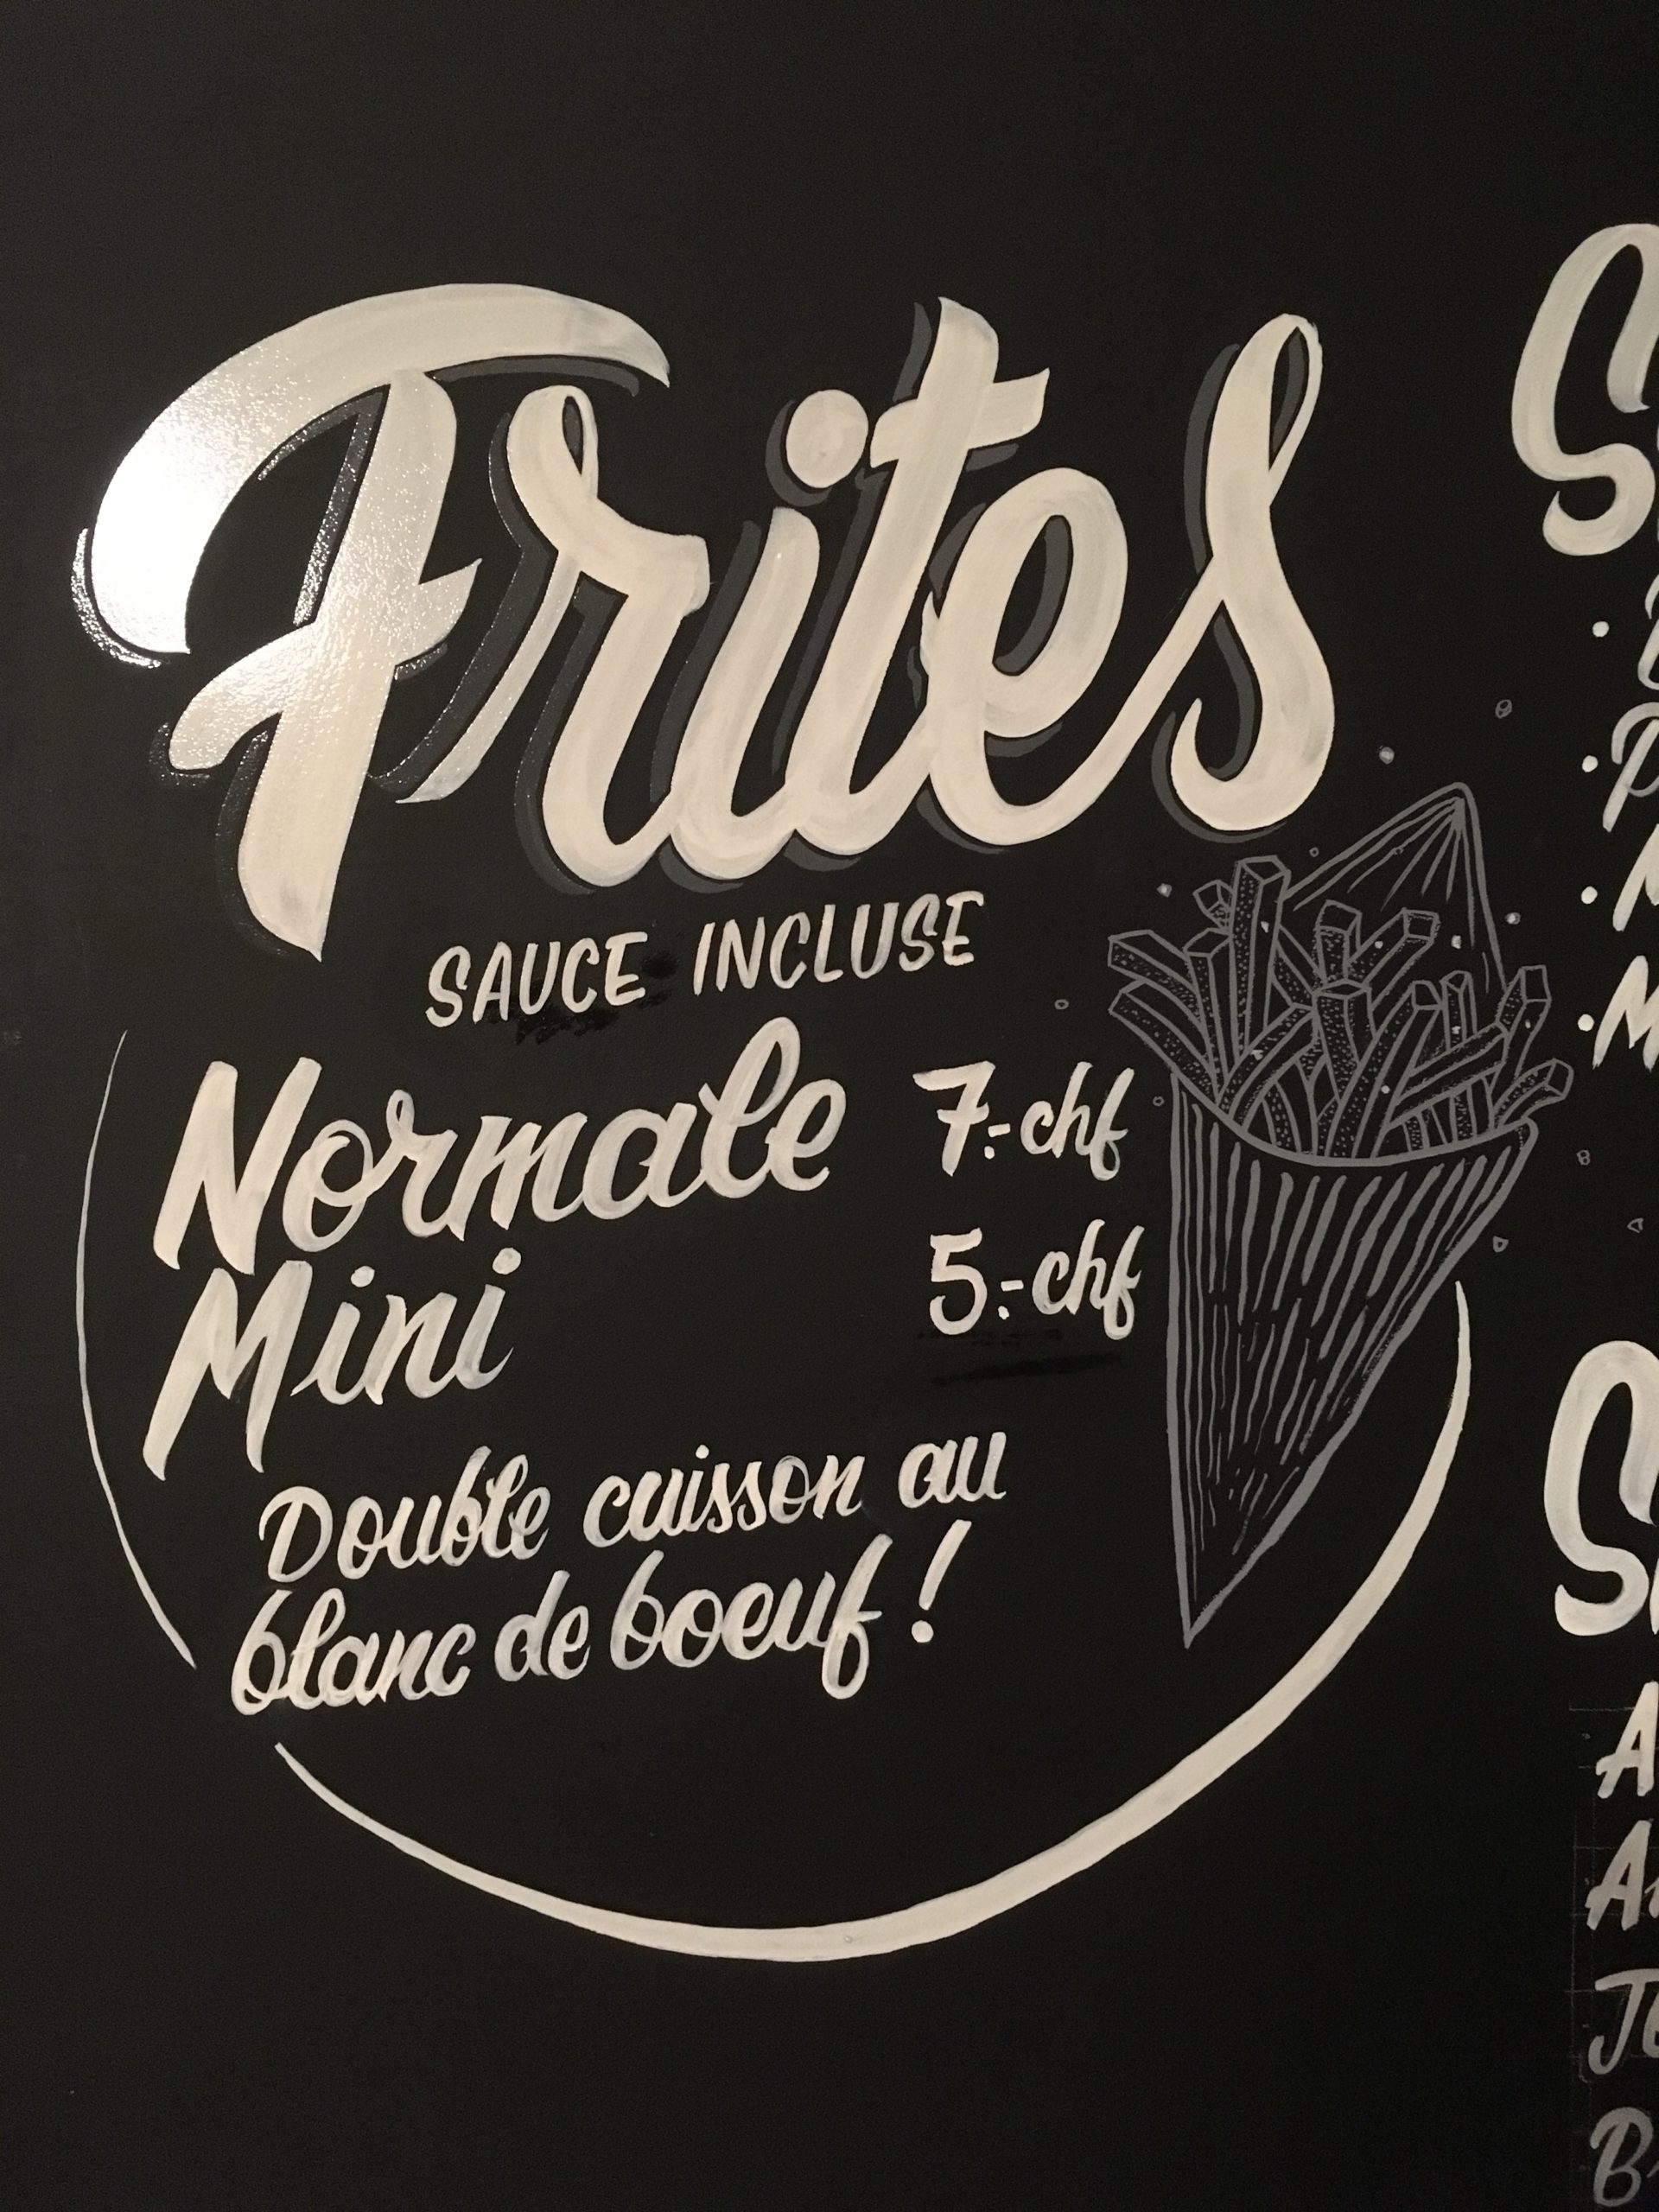 Frites
SAUCE INCLUSE
Normale 7.- chf
Mini 5.- chf
Double cuisson au
blanc de boeuf !